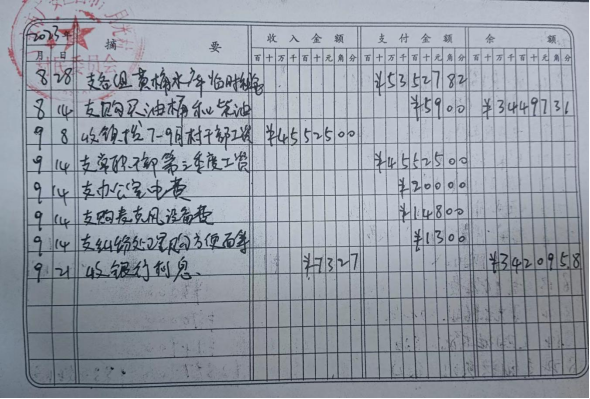 2023年
月 日 摘 要 收入金额 支付金额 余额
百十万千百十元角分 百十万千百十元角分 百十万千百十元角分
8 28 支 ¥5352782
8 14 支购买油桶和柴油 ¥5900 ¥3449731
9 8 收镇拨7-9月村干部工资 ¥4552500
9 14 支享职干部第三季度工资 ¥4552500
9 14 支办公室电费 ¥20000
9 14 支购麦克风设备费 ¥14800
9 14 支纠纷处理购方便面等 ¥1300
9 21 收银行利息 ¥7327 ¥3420958